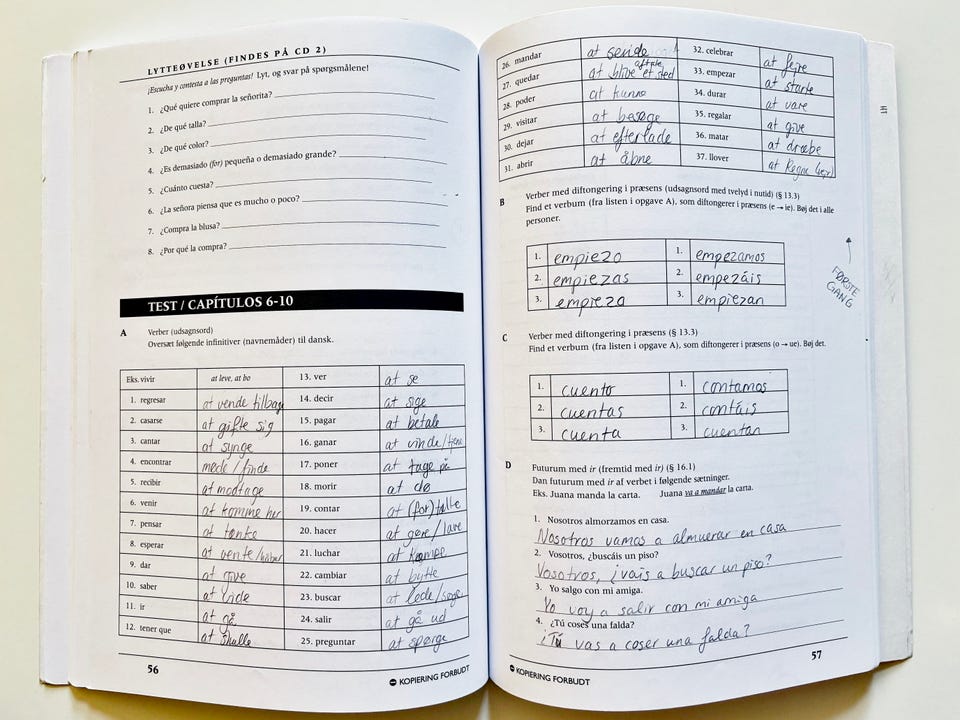 LYTTEØVELSE (FINDES PÅ CD 2)
¡Escucha y contesta a las preguntas! Lyt, og svar på spørgsmålene!
1. ¿Qué quiere comprar la señorita?
2. ¿De qué talla?
3. ¿De qué color?
4. ¿Es demasiado (for) pequeña o demasiado grande?
5. ¿Cuánto cuesta?
6. ¿La señora piensa que es mucho o poco?
7. ¿Compra la blusa?
8. ¿Por qué la compra?
TEST / CAPÍTULOS 6-10
A Verber (udsagnsord)
Oversæt følgende infinitiver (navnemåder) til dansk.
Eks. vivir at leve, at bo
1. regresar at vende tilbage
2. casarse at gifte sig
3. cantar at synge
4. encontrar møde/finde
5. recibir at modtage
6. venir at komme her
7. pensar at tænke
8. esperar at vente/håber
9. dar at give
10. saber at vide
11. ir at gå
12. tener que at skulle
13. ver at se
14. decir at sige
15. pagar at betale
16. ganar at vinde/tjene
17. poner at tage på
18. morir at dø
19. contar at (for)tælle
20. hacer at gøre/lave
21. luchar at kæmpe
22. cambiar at bytte
23. buscar at lede/søge
24. salir at gå ud
25. preguntar at spørge
56
KOPIERING FORBUDT
26. mandar at sende
27. quedar at blive et sted
28. poder at kunne
29. visitar at besøge
30. dejar at efterlade
31. abrir at åbne
32. celebrar at fejre
33. empezar at starte
34. durar at vare
35. regalar at give
36. matar at dræbe
37. llover at regne
B Verber med diftongering i præsens (udsagnsord med tvelyd i nutid) (§ 13.3)
Find et verbum (fra listen i opgave A), som diftongerer i præsens (e → ie). Bøj det i alle
personer.
1. empiezo 1. empezamos
2. empiezas 2. empezáis
3. empieza 3. empiezan
FØRSTE
GANG
C Verber med diftongering i præsens (§ 13.3)
Find et verbum (fra listen i opgave A), som diftongerer i præsens (o → ue). Bøj det.
1. cuento 1. contamos
2. cuentas 2. contáis
3. cuenta 3. cuentan
D Futurum med ir (fremtid med ir) (§ 16.1)
Dan futurum med ir af verbet i følgende sætninger.
Eks. Juana manda la carta. Juana va a mandar la carta.
1. Nosotros almorzamos en casa.
Nosotros vamos a almuerar en casa
2. Vosotros, ¿buscáis un piso?
Vosotros, ¿vais a buscar un piso?
3. Yo salgo con mi amiga.
Yo voy a salir con mi amiga
4. ¿Tú coses una falda?
¿Tú vas a coser una falda?
57
KOPIERING FORBUDT